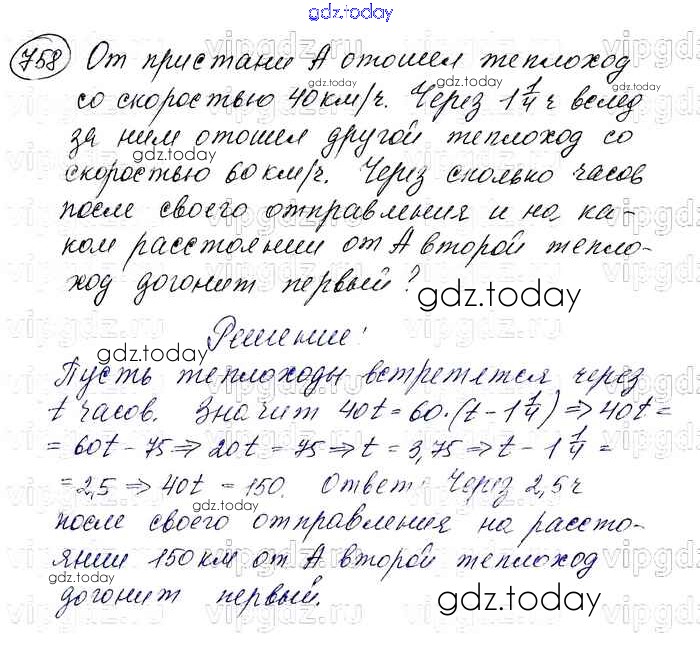 gdz.today
758 От пристани А отошел теплоход
со скоростью 40 км/ч. Через 1 1/4 ч вслед
за ним отошел другой теплоход со
скоростью 60 км/ч. Через сколько часов
после своего отправления и на ка-
ком расстоянии от А второй тепло-
ход догонит первый?
gdz.today
Решение!
Пусть теплоходы встретятся через
t часов. Значит 40t = 60·(t - 1 1/4) ⇒ 40t =
= 60t - 75 ⇒ 20t = 75 ⇒ t = 3,75 ⇒ t - 1 1/4 =
= 2,5 ⇒ 40t = 150. Ответ: Через 2,5 ч
после своего отправления на рассто-
янии 150 км от А второй теплоход
догонит первый.
gdz.today